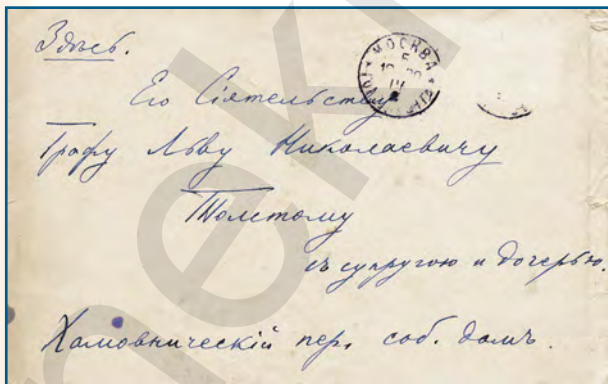 Здѣсь.
МОСКВА
Его Сіятельству
Графу Льву Николаевичу
Толстому
съ супругою и дочерью.
Хамовническій пер. соб. домъ.